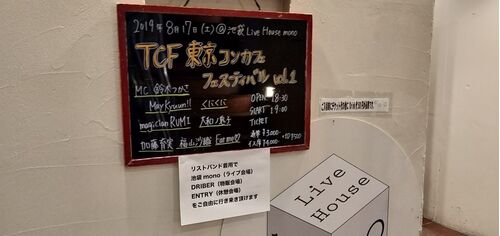 2019年8月17日(土)@池袋 Live House mono
TCF 東京コンカフェ
フェスティバル vol.1
MC 鈴木つかさ
MayKyuun!! くにくに
magician RUMI 大和の泉子
加藤育実 福山沙織 Fonmo♡
OPEN 18:30
START 19:00
TICKET
通常 ¥3,000-
+1D ¥500
リストバンド着用で
池袋 mono(ライブ会場)
DRIBER(物販会場)
ENTRY(休憩会場)
をご自由に行き来き頂けます
Live
House